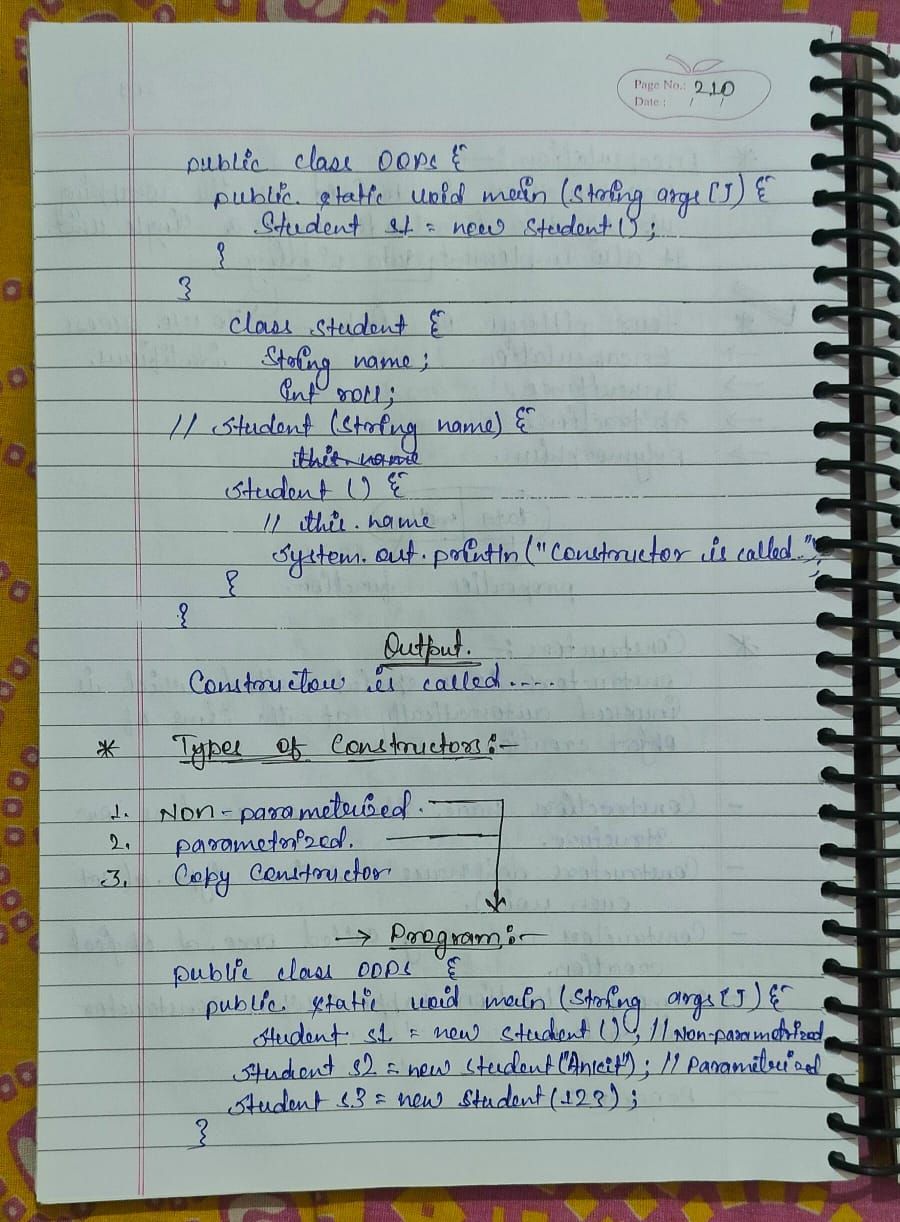 Page No.: 210
Date : / /
public class OOPS {
public static void main (String args []) {
Student s1 = new Student () ;
}
}
class student {
String name ;
int roll ;
// student (String name) {
this. name
student () {
// this . name
system. out . println ("Constructor is called..") ;
}
}
Output.
Constructor is called.....
* Types of Constructors :-
1. Non-parameterized.
2. parametrized.
3. Copy Constructor
→ Program :-
public class OOPS {
public static void main (String args []) {
student s1 = new student () ; // Non-parametrized
student s2 = new student ("Ankit") ; // Parametrized
student s3 = new student (123) ;
}